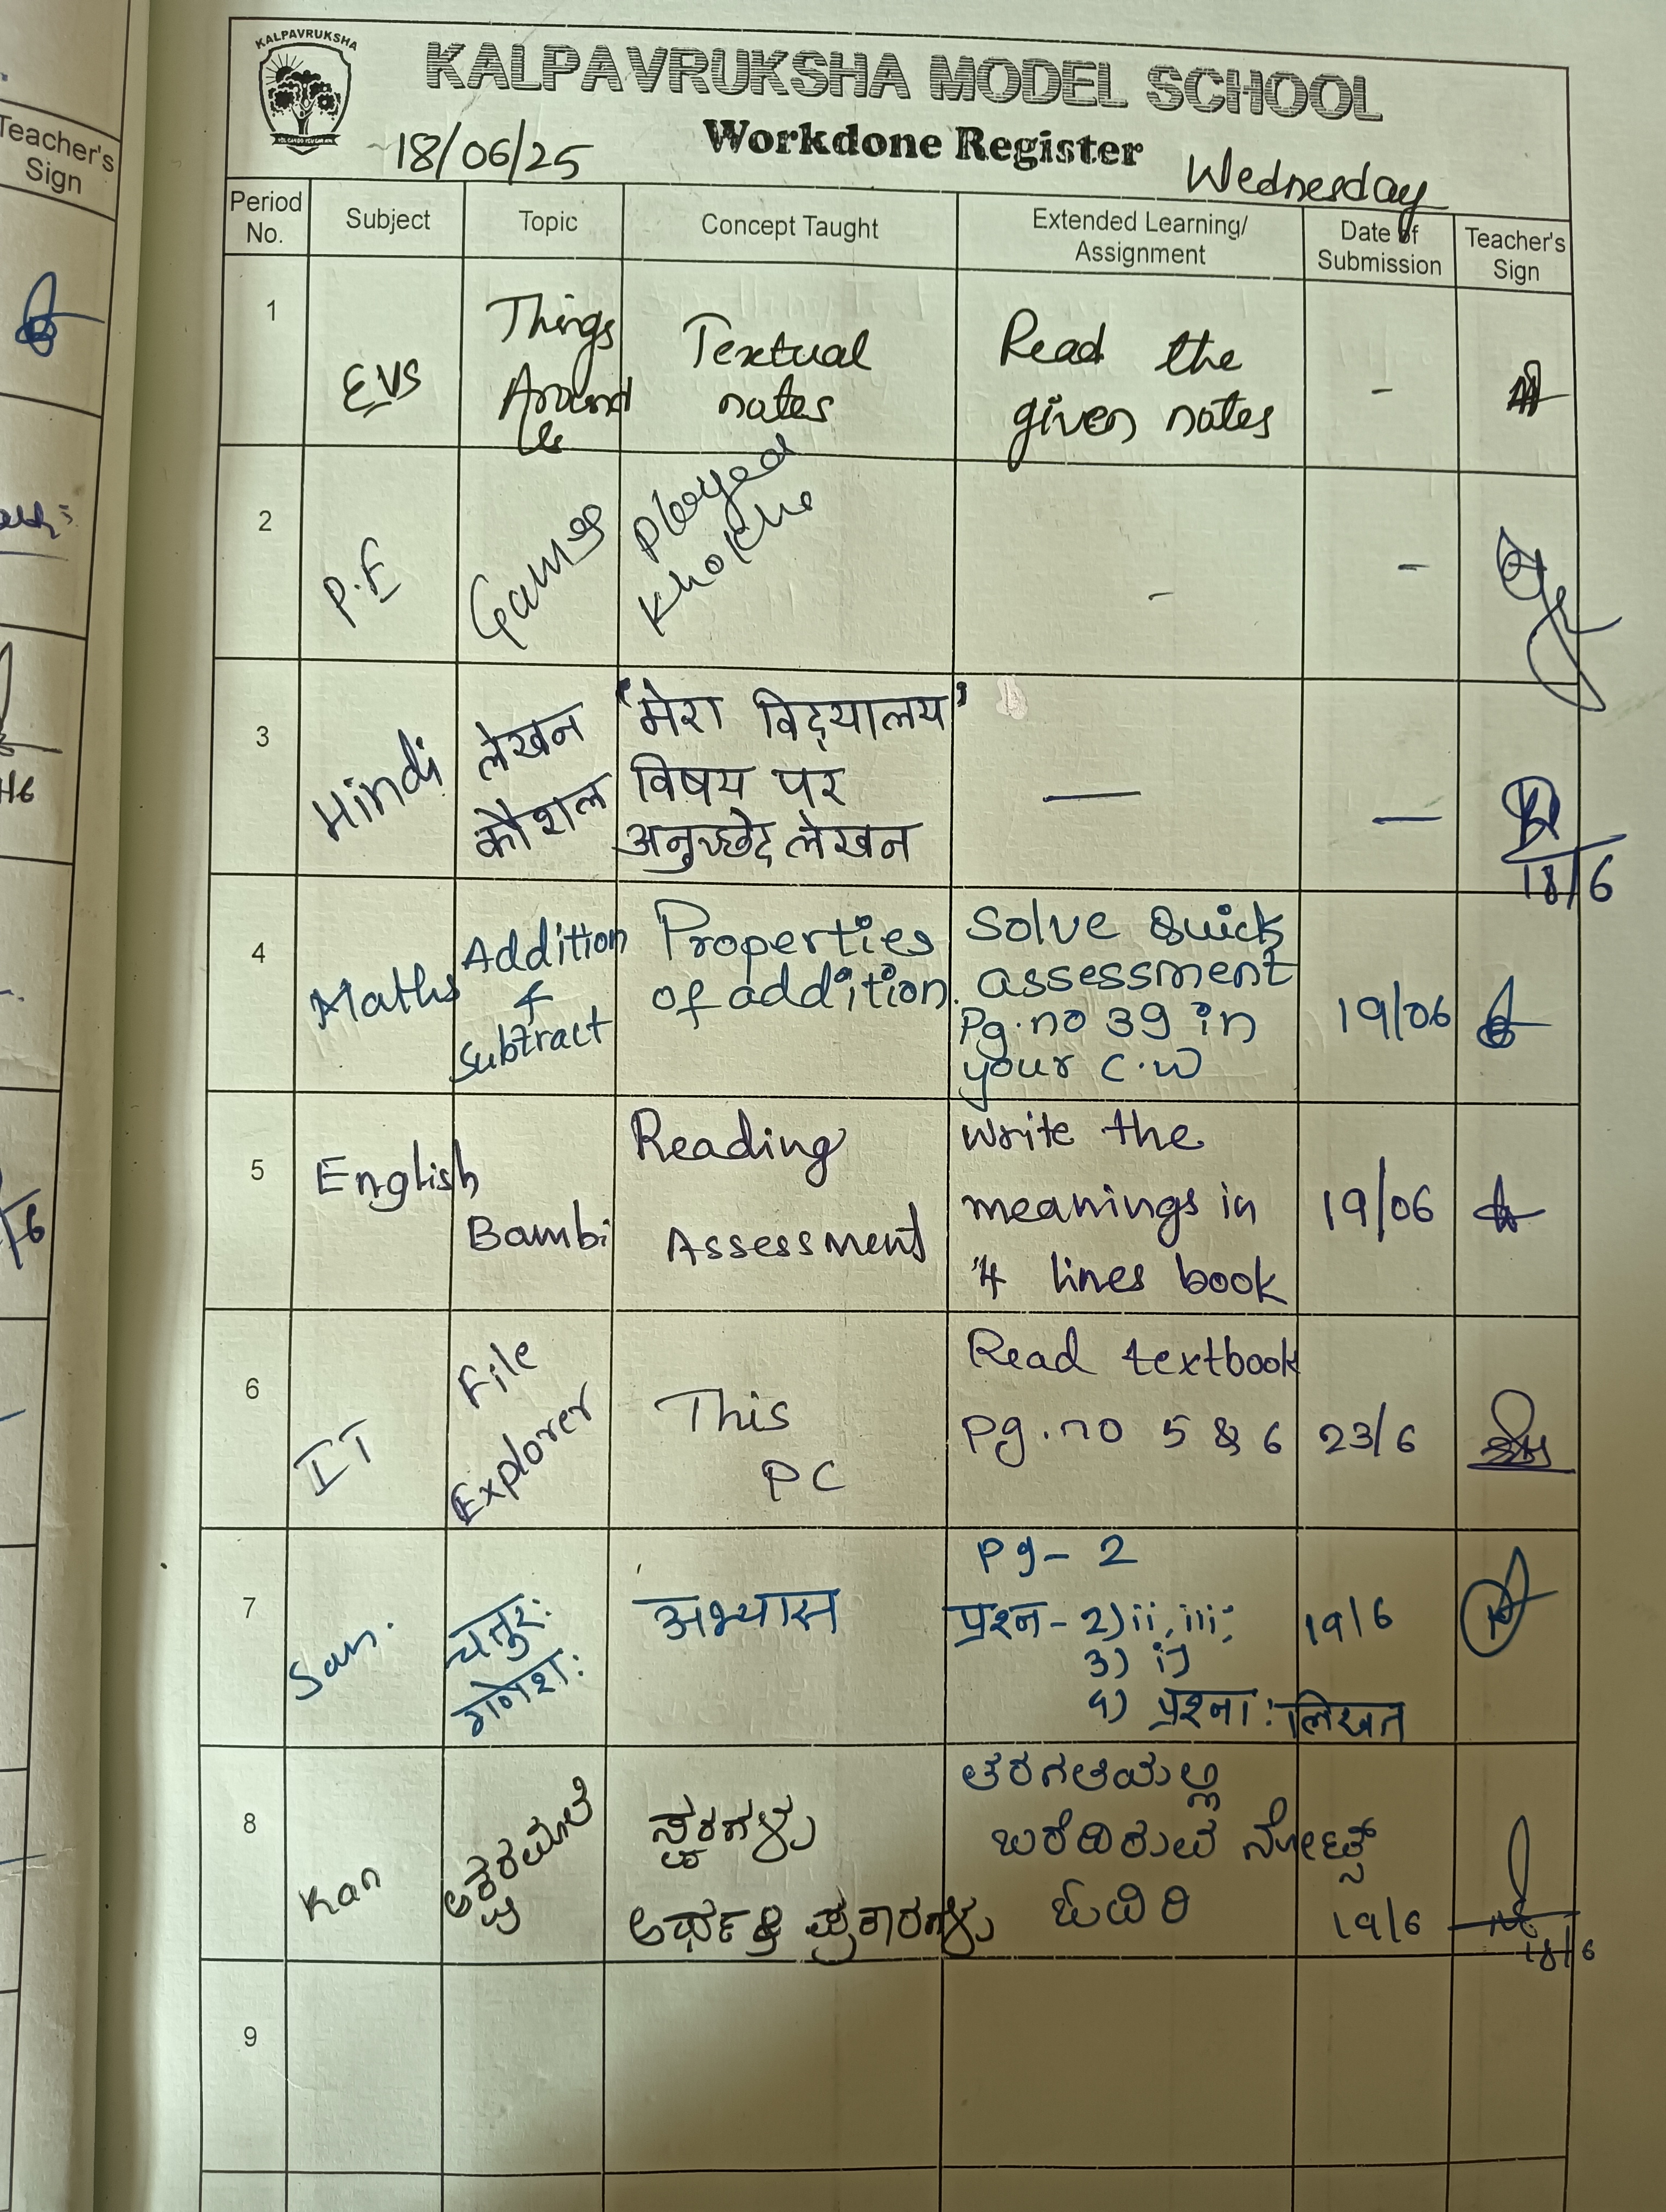 KALPAVRUKSHA
KALPAVRUKSHA MODEL SCHOOL
Workdone Register
18/06/25
Wednesday
Period No.
Subject
Topic
Concept Taught
Extended Learning/
Assignment
Date of
Submission
Teacher's
Sign
1
EVS
Things
Around
Us
Textual
notes
Read the
given notes
-
2
P.E
Games
Played
Kho Kho
-
-
3
Hindi
लेखन
कौशल
'मेरा विद्यालय'
विषय पर
अनुच्छेद लेखन
—
—
18/6
4
Maths
Addition
&
Subtract
Properties
of addition.
Solve Quick
assessment
Pg.no 39 in
your C.W
19/06
5
English
Bambi
Reading
Assessment
Write the
meanings in
4 lines book
19/06
6
IT
File
Explorer
This
PC
Read textbook
pg.no 5 & 6
23/6
7
San.
चतुरः
गणेशः
अभ्यास
Pg- 2
प्रश्न- 2) ii, iii,
3) i)
4) प्रश्नाः लिखत
19/6
8
Kan
ಸ್ವರಗಳು
ತರಗತಿಯಲ್ಲಿ
ಬರೆದಿರುವ ನೋಟ್ಸ್
ಓದಿರಿ
19/6
18/6
9
Teacher's
Sign